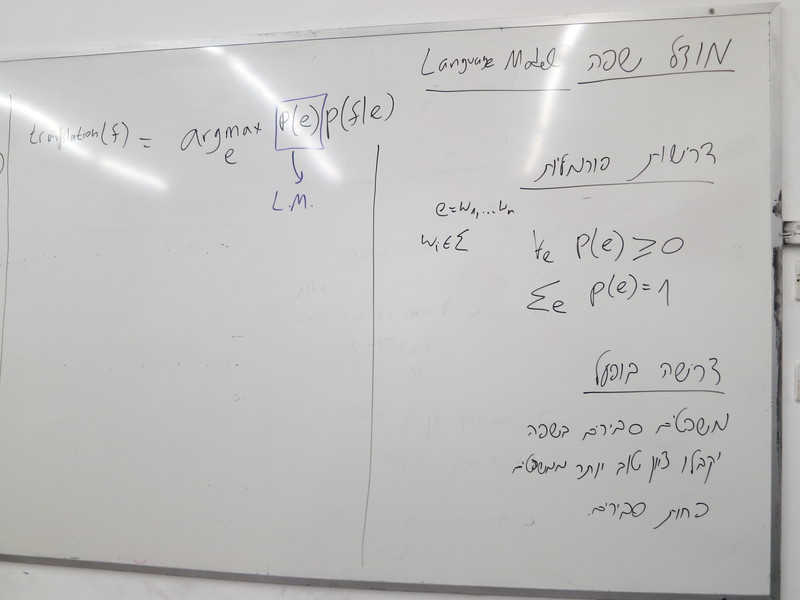 translation(f) = argmax p(e) p(f|e)
e
L.M.
מודל שפה Language Model
דרישות פורמליות
e=w₁,...wₙ
wᵢ∈Σ
∀e p(e) ≥ 0
Σe p(e) = 1
דרישה בפועל
משפטים סבירים בשפה
יקבלו ציון טוב יותר ממשפטים
פחות סבירים.